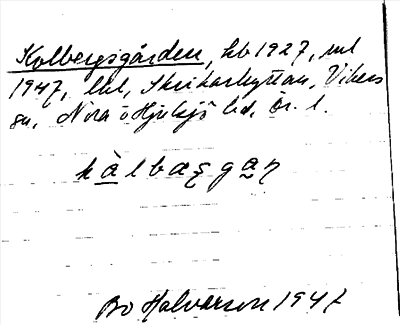 Kolbergsgården, kb 1927, ml
1947, lht, Skrikarhyttan, Vikers
sn, Nora o Hjulsjö bd, Ör. l.
kàlbæșgaṇ
Bo Halvarson 1947